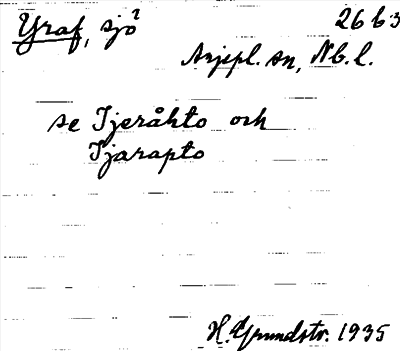 Yraf, sjö? 26 b 3
Arjepl. sn, Nb. l.
se Tjeråkto och
Tjarapto
H. Grundstr. 1935